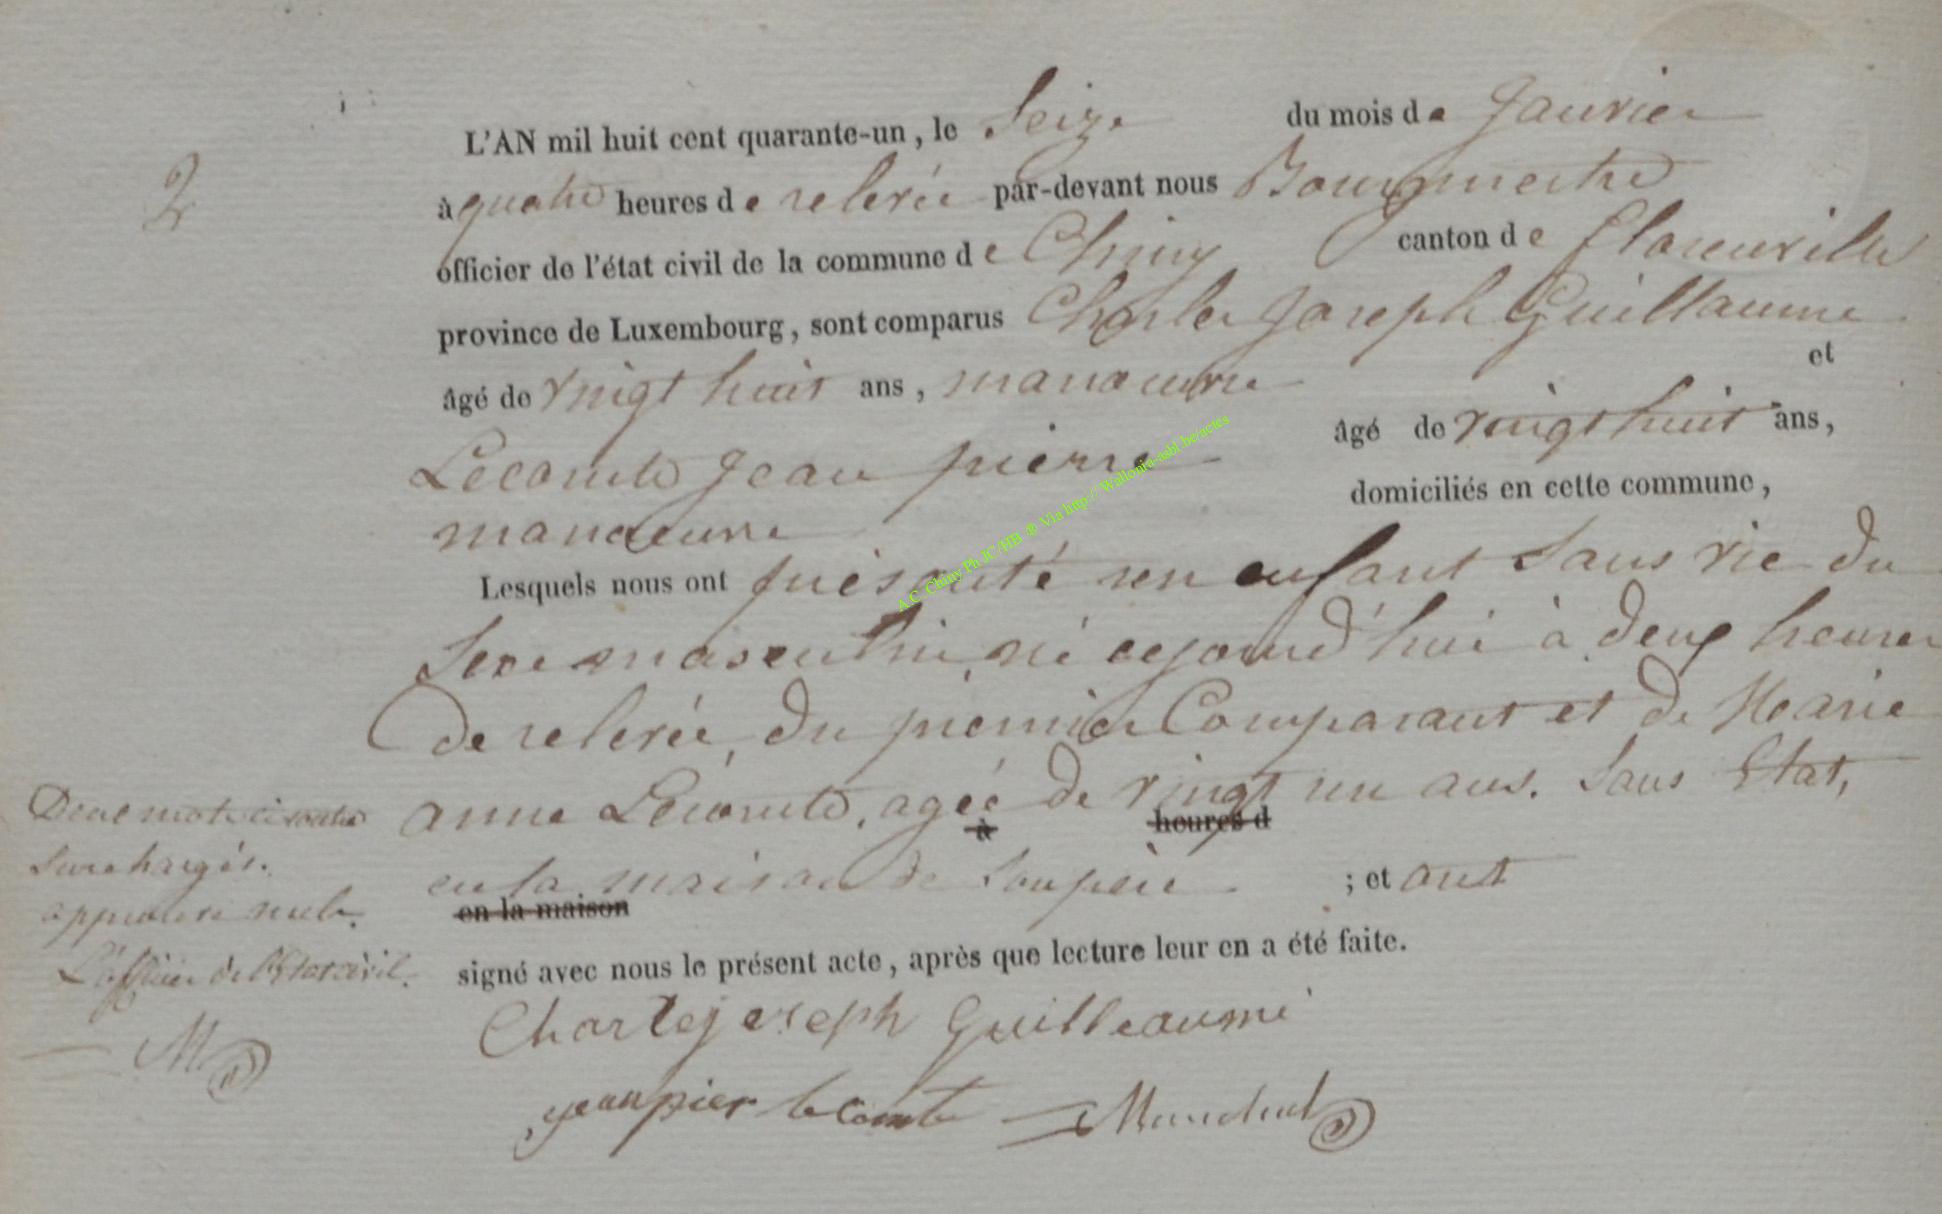 2
L'AN mil huit cent quarante-un, le Seize du mois de Janvier
à quatre heures de relevée par-devant nous Bourgmestre
officier de l'état civil de la commune de Chiny canton de florenville
province de Luxembourg, sont comparus Charles Joseph Guillaume
âgé de vingt huit ans, manoeuvre et
Lecomte Jean pierre âgé de vingt huit ans,
manoeuvre domiciliés en cette commune,
Lesquels nous ont présenté un enfant sans vie du
Sexe masculin, né cejourd'hui à deux heures
de relevée, du premier Comparant et de Marie
anne Lecomte, agée de vingt un ans. Sans Etat,
à heures d
en sa maison de ; et ont
en la maison
signé avec nous le présent acte, après que lecture leur en a été faite.
Deux mots
Surchargés.
L'officier de l'Etat civil.
M
Charle joseph Guilleaume
jeanpier le comte
A.C. Chiny Ph JC/HB ® Via http://Wallonia-asbl.be/actes